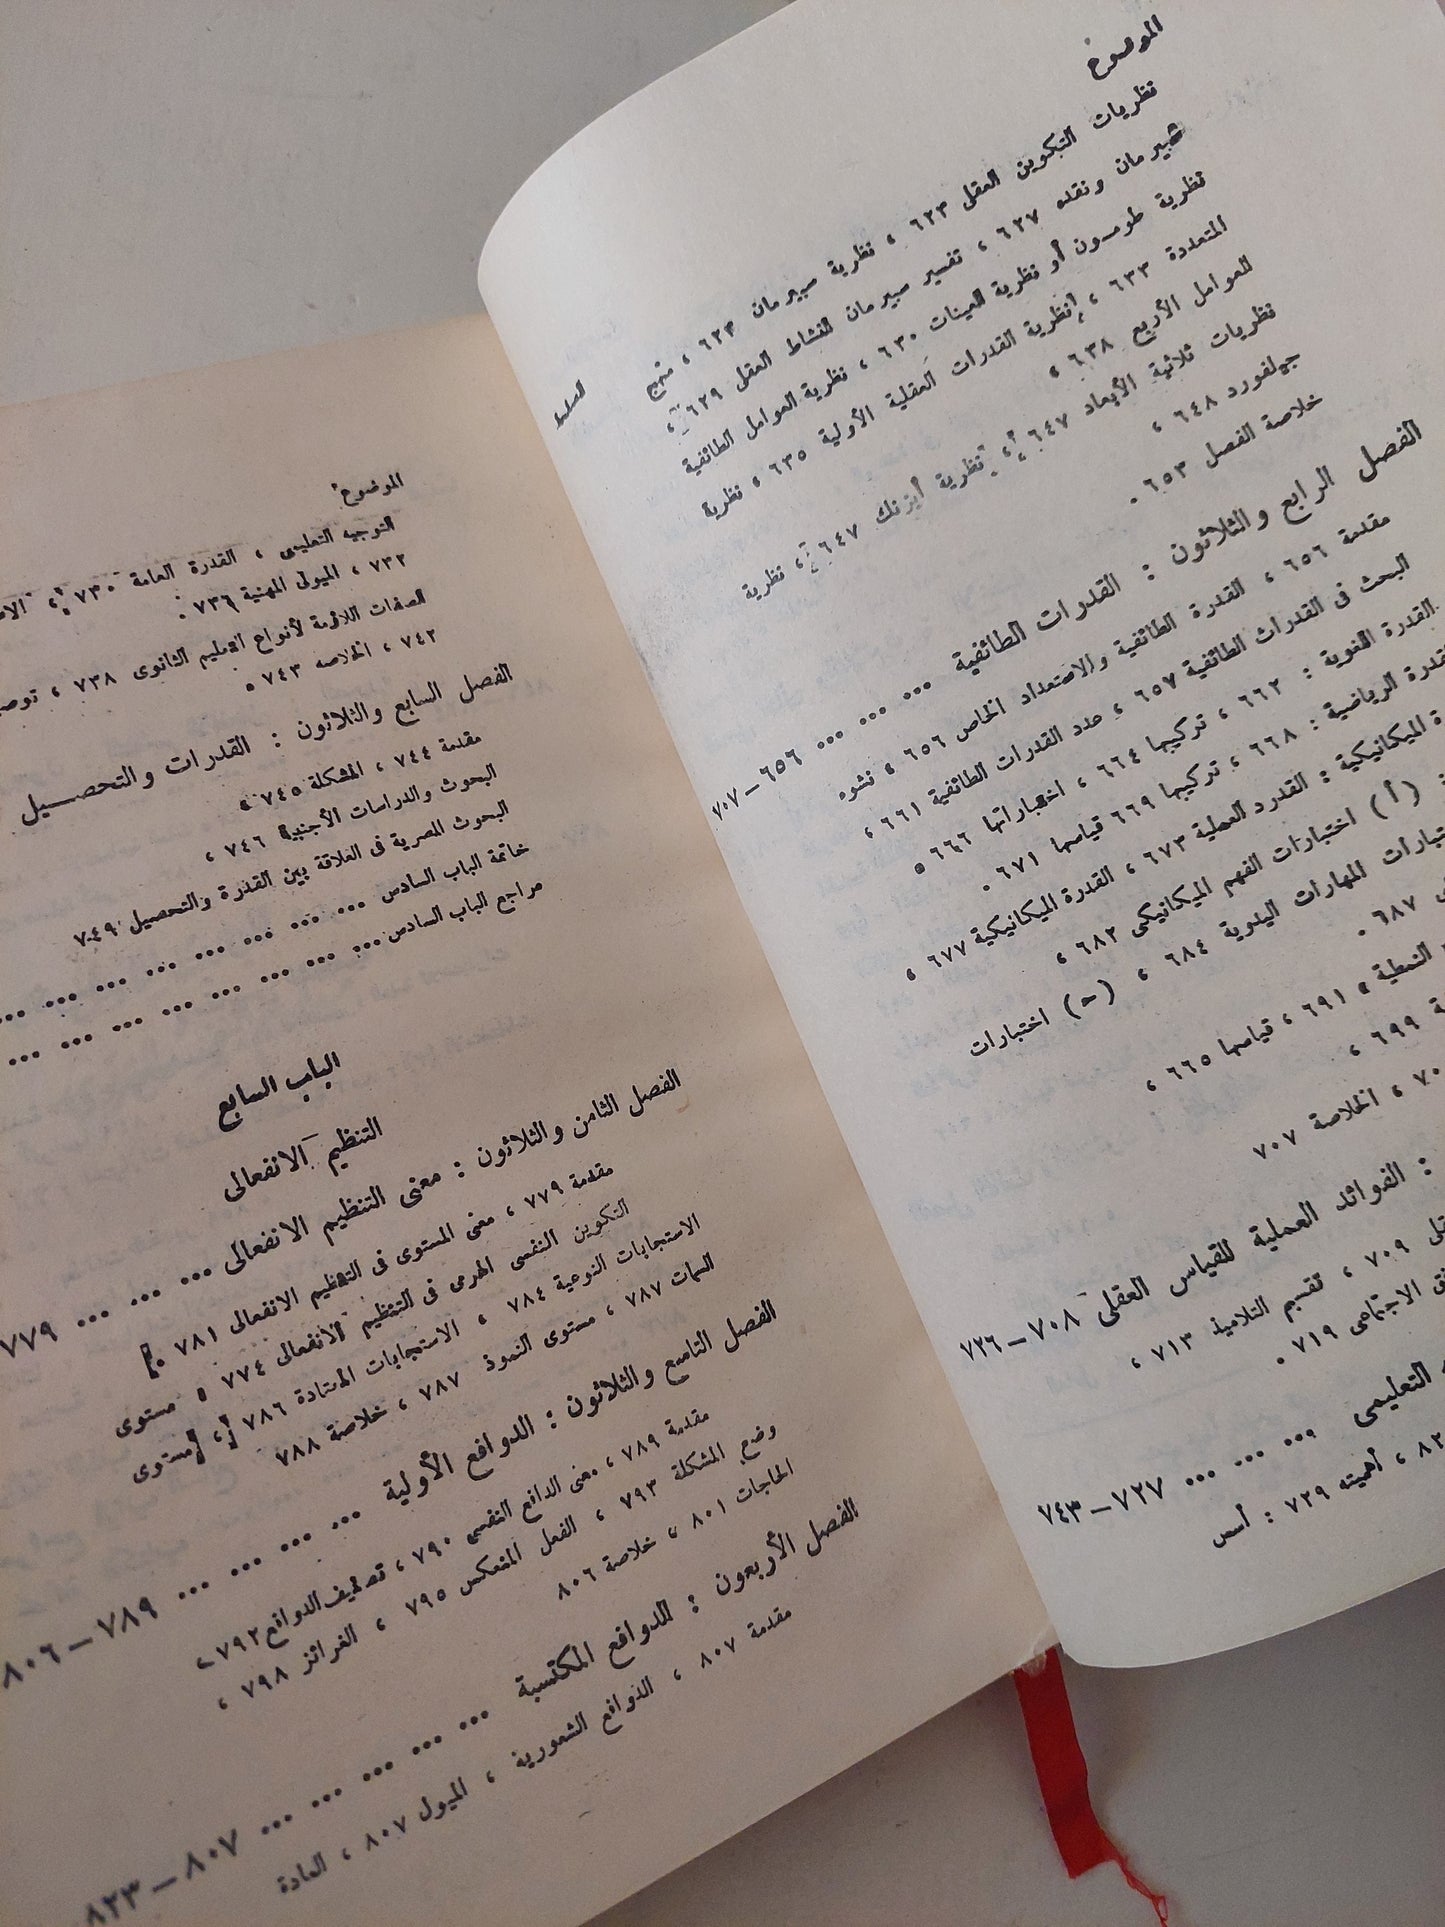 الموضوع
نظريات التكوين العقلى ٦٢٣ ، نظرية سبيرمان ٦٢٣ ، منهج
سبيرمان ونقده ٦٢٧ ، تفسير سبيرمان للنشاط العقلى ٦٢٩ ،
نظرية طومسون أو نظرية العينات ٦٣٠ ، نظرية العوامل الطائفية
المتعددة ٦٣٣ ، نظرية القدرات العقلية الأولية ٦٣٥ ، نظرية
العوامل الأربع ٦٣٨ ،
نظريات ثلاثية الأبعاد ٦٤٧ ، نظرية أيزنك ٦٤٧ ، نظرية
جيلفورد ٦٤٨ ،
خلاصة الفصل ٦٥٣ .
الفصل الرابع والثلاثون : القدرات الطائفية ... ... ... ٦٥٦ – ٧٠٧
مقدمة ٦٥٦ ، القدرة الطائفية والاستعداد الخاص ٦٥٦ ، نشوء
البحث فى القدرات الطائفية ٦٥٧ ، عدد القدرات الطائفية ٦٦١ ،
القدرة اللغوية : ٦٦٢ ، تركيبها ٦٦٤ ، اختباراتها ٦٦٦ ،
القدرة الرياضية : ٦٦٨ ، تركيبها ٦٦٩ قياسها ٦٧١ .
الميكانيكية : القدرة العملية ٦٧٣ ، القدرة الميكانيكية ٦٧٧ ،
: (أ) اختبارات الفهم الميكانيكى ٦٨٢ ،
اختبارات المهارات اليدوية ٦٨٤ ، (ح) اختبارات
٦٨٧ .
النمطية ، ٦٩١ ، قياسها ٦٦٥ ،
٦٩٩ ،
، الخلاصة ٧٠٧
: الفوائد العملية للقياس العقلى ٧٠٨ – ٧٢٦
٧٠٩ ، تقسيم التلاميذ ٧١٣ ،
الاجتماعى ٧١٩ .
التعليمى ... ... ... ٧٢٧ – ٧٤٣
، أهميته ٧٢٩ : أسس
الموضوع
التوجيه التعليمى ، القدرة العامة ٧٣٠ ،
٧٣٢ ، الميول المهنية ٧٣٦ .
الصفات اللازمة لأنواع التعليم الثانوى ٧٣٨ ،
٧٤٢ ، الخلاصه ٧٤٣ .
الفصل السابع والثلاثون : القدرات والتحصيل
مقدمة ٧٤٤ ، المشكلة ٧٤٥ ،
البحوث والدراسات الأجنبية ٧٤٦ ،
البحوث المصرية فى العلاقة بين القدرة والتحصيل ٧٤٩
خاتمة الباب السادس ... ... ... ... ... ... ... ...
مراجع الباب السادس ... ... ... ... ... ... ... ...
الباب السابع
التنظيم الانفعالى
الفصل الثامن والثلاثون : معنى التنظيم الانفعالى ... ... ... ٧٧٩
مقدمة ٧٧٩ ، معنى المستوى فى التنظيم الانفعالى ٧٨١ .
التكوين النفسى الهرمى فى التنظيم الانفعالى ٧٧٤ ، مستوى
الاستجابات النوعية ٧٨٤ ، الاستجابات المعتادة ٧٨٦ ، مستوى
السمات ٧٨٧ ، مستوى النموذ ٧٨٧ ، خلاصة ٧٨٨
الفصل التاسع والثلاثون : الدوافع الأولية ... ... ... ... ٧٨٩ – ٨٠٦
مقدمة ٧٨٩ ، معنى الدافع النفسى ٧٩٠ ، تصنيف الدوافع ٧٩٢ ،
وضع المشكلة ٧٩٣ ، الفعل المنعكس ٧٩٥ ، الغرائز ٧٩٨ ،
الحاجات ٨٠١ ، خلاصة ٨٠٦
الفصل الأربعون : الدوافع المكتسبة ... ... ... ... ... ٨٠٧ – ٨٢٣
مقدمة ٨٠٧ ، الدوافع الشعورية ، الميول ٨٠٧ ، العادة